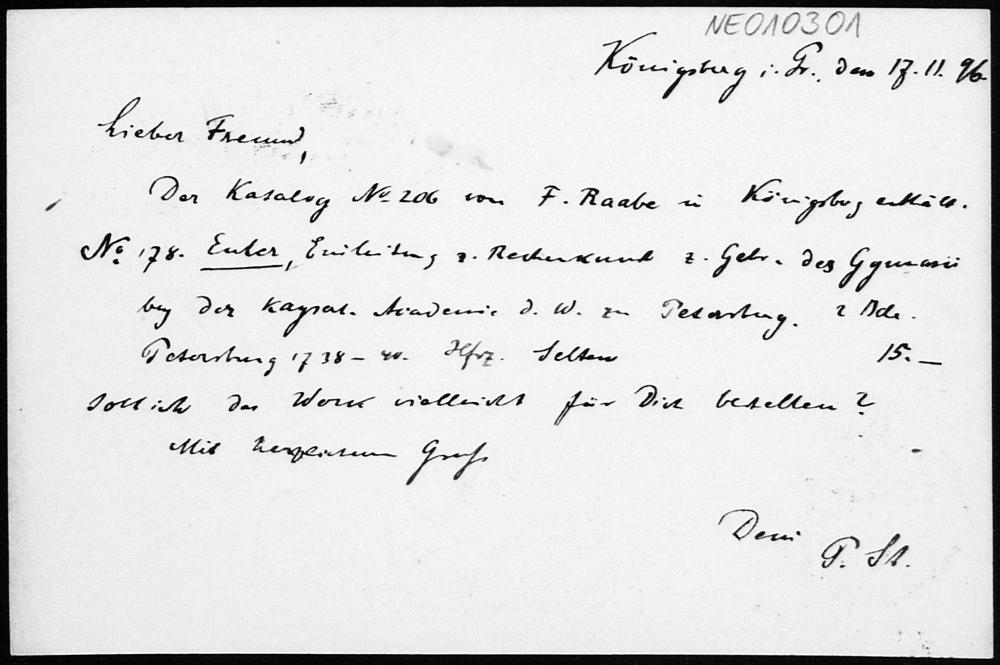 NE010301
Königsberg i. Pr., den 17. 11. 96.
Lieber Freund,
Der Katalog No 206 von F. Raabe in Königsberg enthält.
No 178. Euler, Einleitung z. Rechenkunst z. Gebr. des Gymnasii
bey der Kayserl. Academie d. W. zu Petersburg. 2 Bde.
Petersburg 1738–40. Hfrz. Selten 15.—
Soll ich das Werk vielleicht für Dich bestellen?
Mit herzlichem Gruß
Dein
P. St.